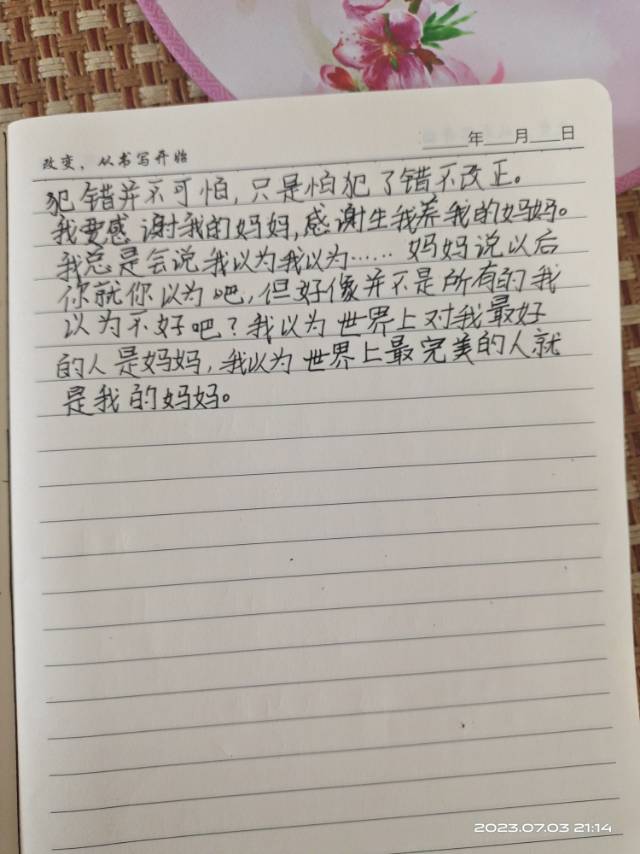 改变，从书写开始
年 月 日
犯错并不可怕，只是怕犯了错不改正。
我要感谢我的妈妈，感谢生我养我的妈妈。
我总是会说我以为我以为……妈妈说以后
你就你以为吧，但好像并不是所有的我
以为不好吧？我以为世界上对我最好
的人是妈妈，我以为世界上最完美的人就
是我的妈妈。
2023.07.03 21:14